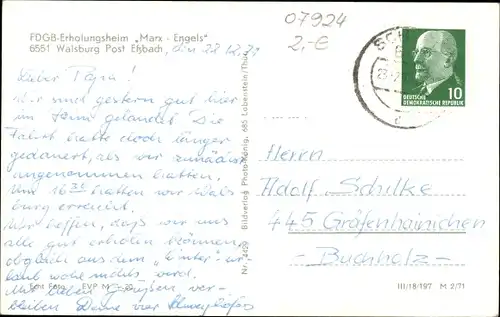 FDGB-Erholungsheim „Marx - Engels"
6551 Walsburg Post Eßbach, den 22.12.
Lieber Papa!
Wir sind gestern gut hier
im Heime gelandet. Die
Fahrt hatte doch länger
gedauert, als wir zunächst
angenommen hatten.
Um 16 30 hatten wir Wals
burg erreicht.
Wir hoffen, daß wir uns
alle gut erholen können,
obgleich aus dem "Winter"-ur-
laub wohl nichts wird.
Mit lieben Grüßen ver-
bleiben Deine vier
Echt Foto EVP M
Nr. 4409 Bildverlag Photo-König, 685 Lobenstein/Thür.
07924
2,-€
10
DEUTSCHE
DEMOKRATISCHE REPUBLIK
Herrn
Adolf Schilke
445 Gräfenhainichen
- Buchholz -
III/18/197 M 2/71